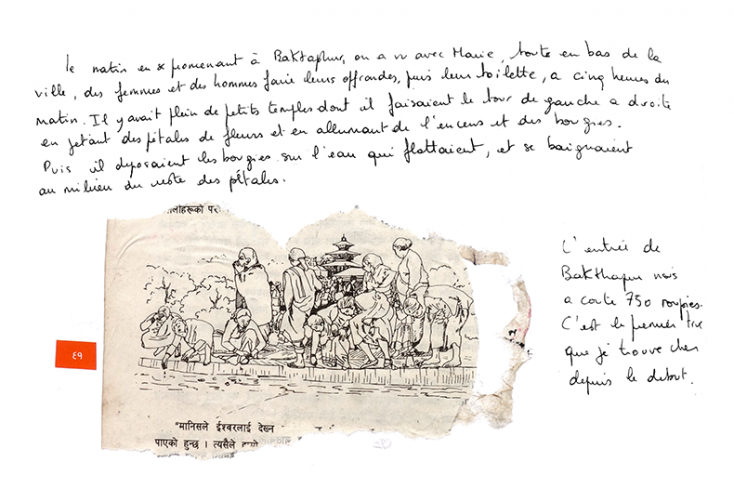 le matin en se promenant à Baktaphur, on a vu avec Marie, toute en bas de la
ville, des femmes et des hommes faire leurs offrandes, puis leur toilette, a cinq heures du
matin. Il y avait plein de petits temples dont il faisaient le tour de gauche a droite
en jetant des pétales de fleurs et en allumant de l'encens et des bougies.
Puis il déposaient les bougies sur l'eau qui flottaient, et se baignaient
au milieu du reste des pétales.
लीहरूको पर
L'entrée de
Bakthapur nous
a couté 750 roupies.
C'est le premier truc
que je trouve cher
depuis le debut.
६१
"मानिसले ईश्वरलाई देख्न
पाएको हुन्छ । त्यसैले